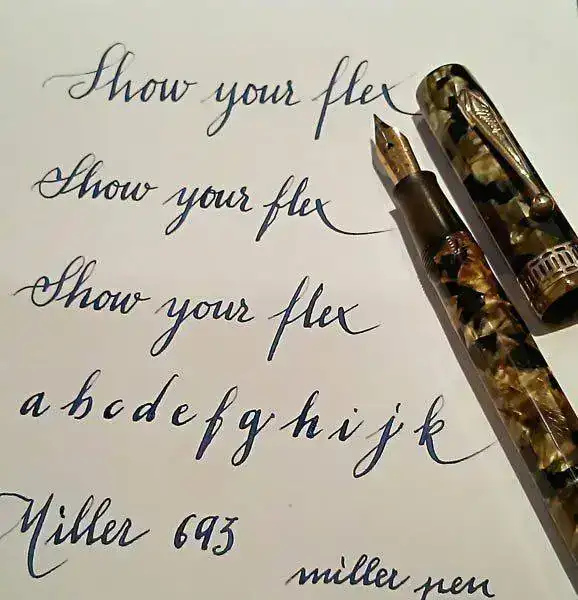 Show your flex
Show your flex
Show your flex
a b c d e f g h i j k
Miller 693
miller pen